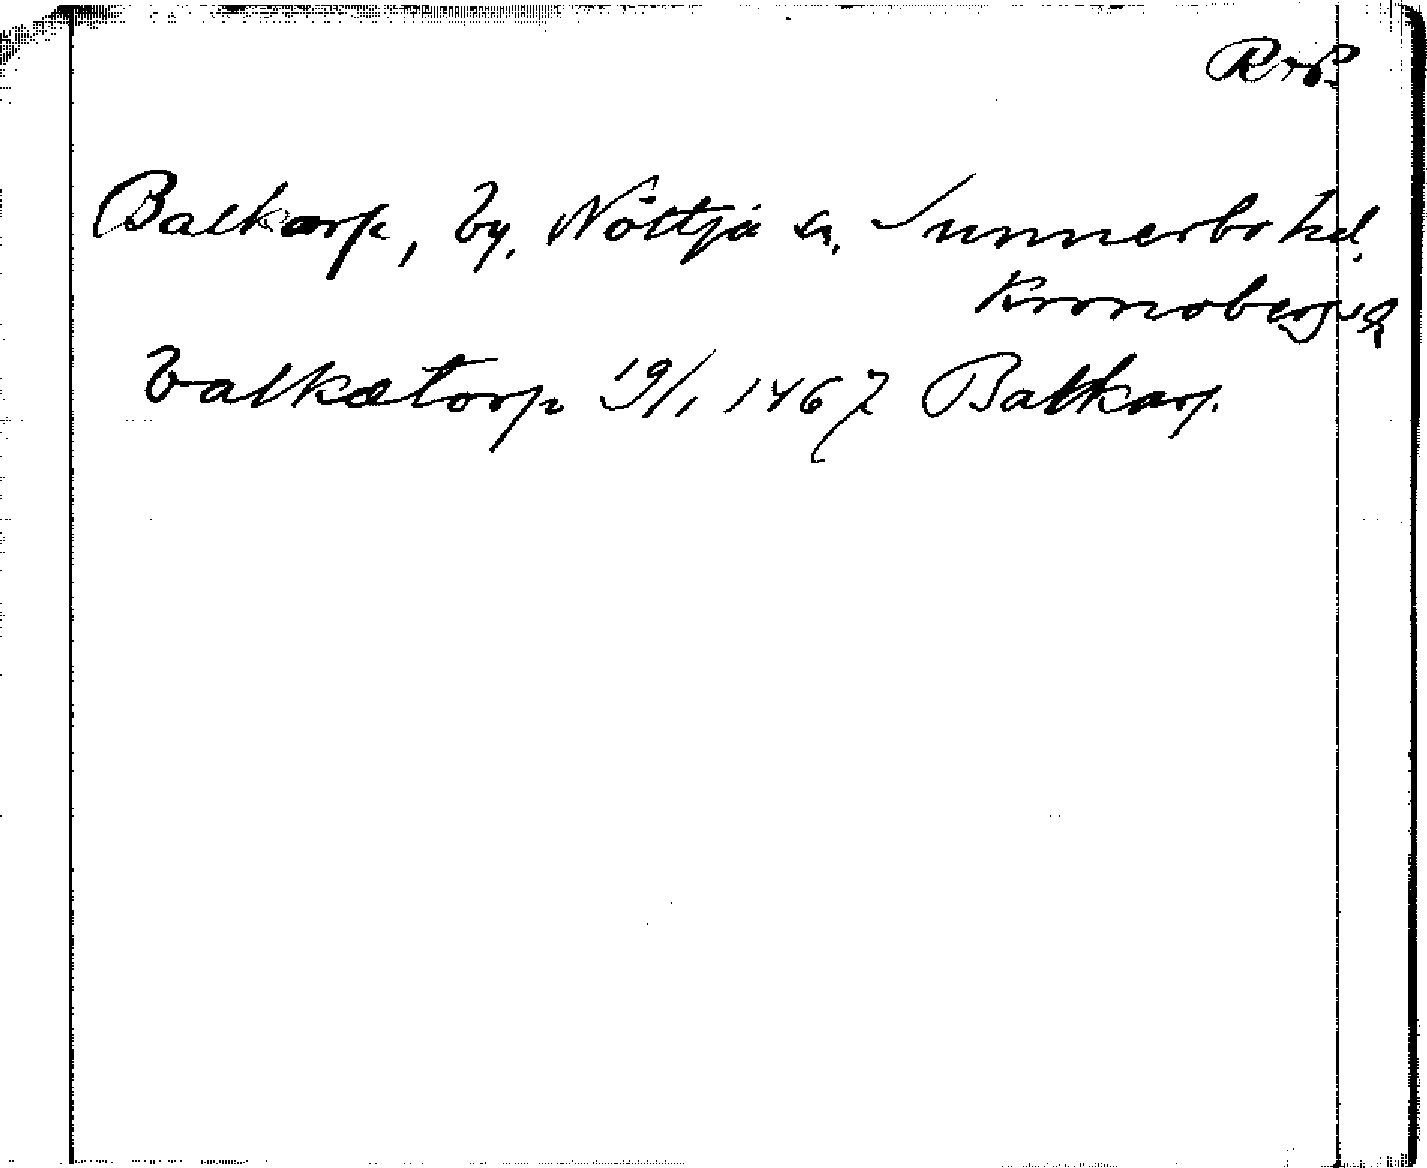 RAP.
Balkarp, by, Nöttja sn, Sunnerbo hd.
Kronobergs l.
balkætorp 19/1 1467 Balkarp.